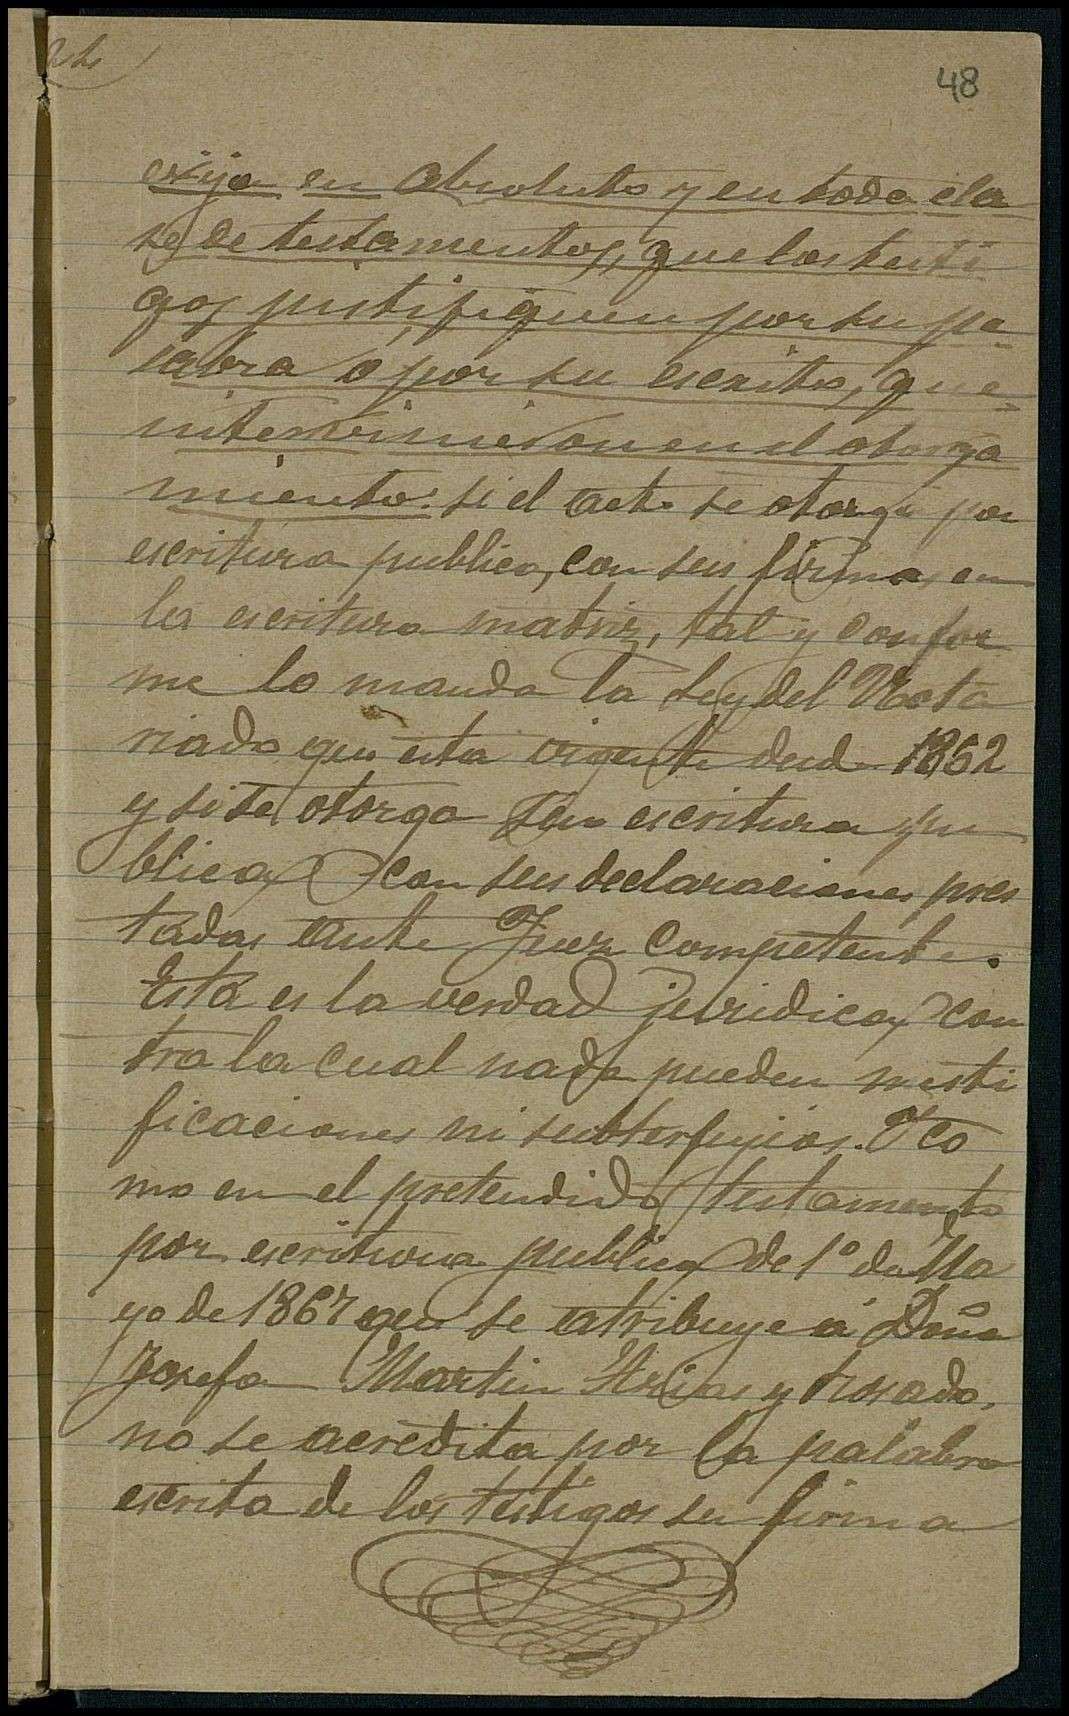 48
exija en absoluto y en toda cla
se de testamentos, que los testi
gos justifiquen por su pa-
labra o por su escrito, que
intervinieron en el otorga
miento: si el acto se otorga por
escritura publica, con sus firmas en
la escritura matriz, tal y confor
me lo manda la Ley del Nota
riado que esta vigente desde 1862
y si se otorga sin escritura pu
blica, con sus declaraciones pres
tadas ante Juez competente.
Esta es la verdad juridica, con
tra la cual nada pueden misti
ficaciones ni subterfugios. Y co
mo en el pretendido testamento
por escritura publica de 1º de Ma
yo de 1867 que se atribuye á Doña
Josefa Martin Arias y Rosado,
no se acredita por la palabra
escrita de los testigos su firma